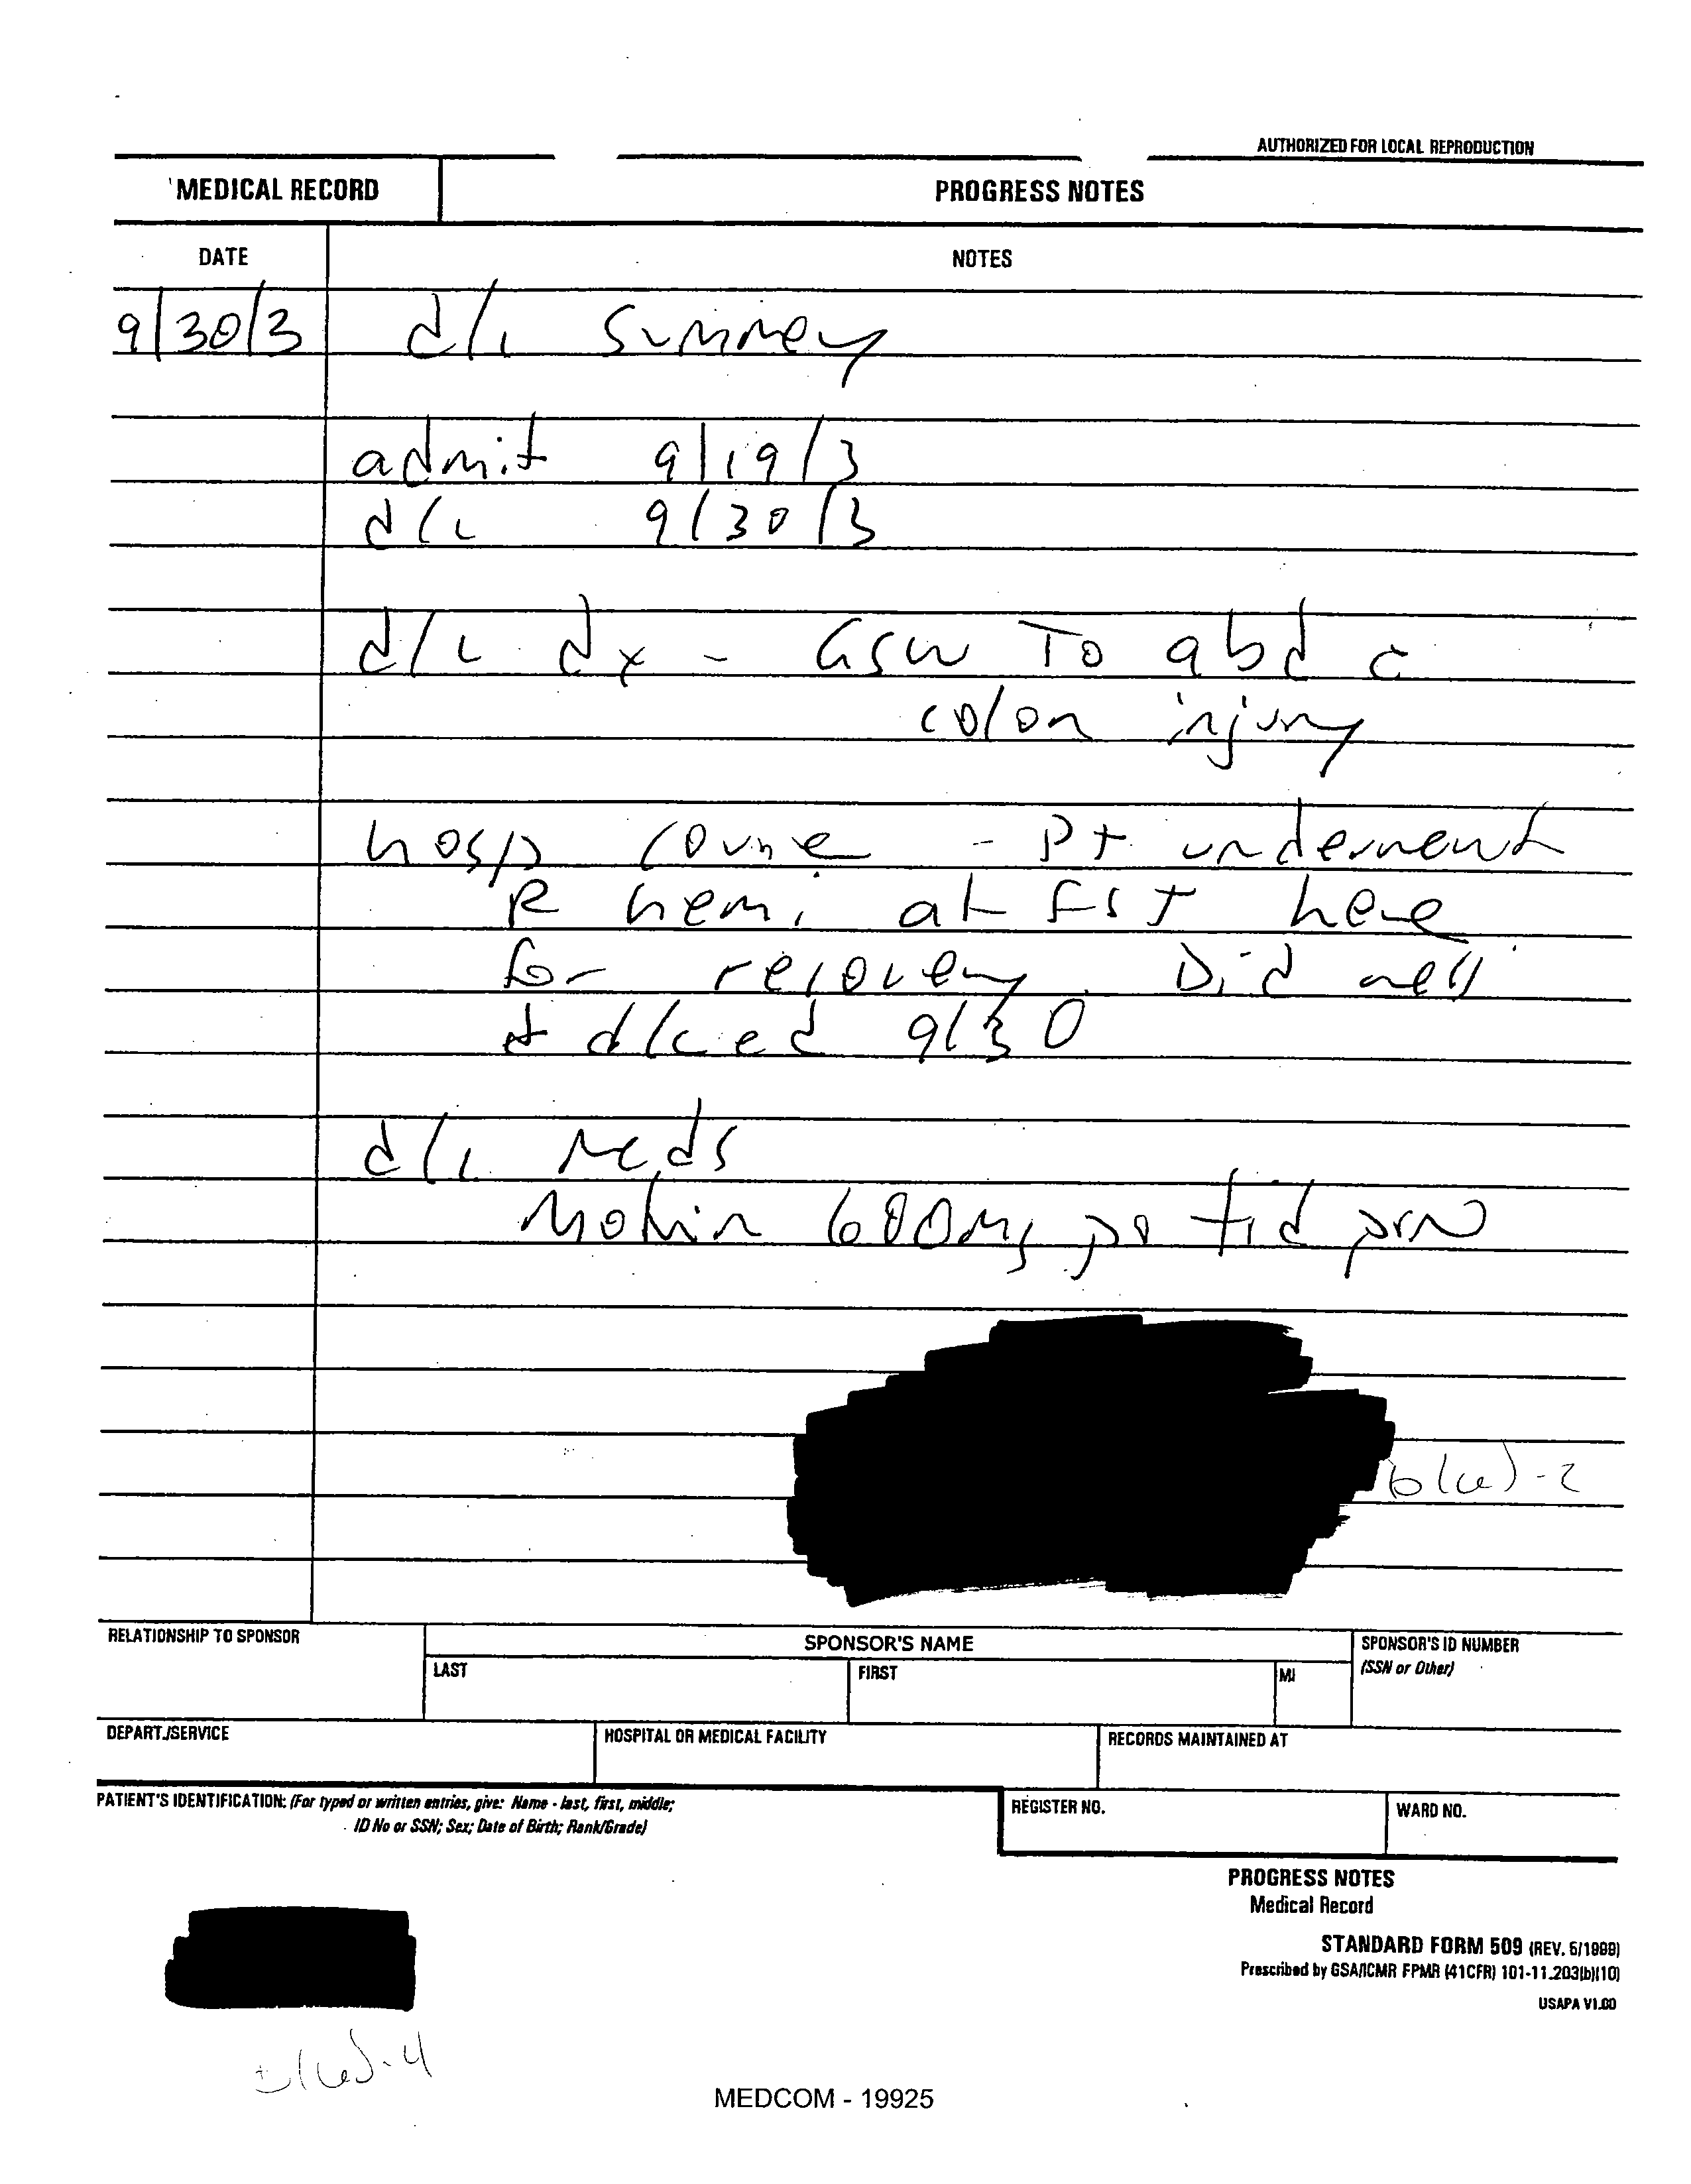 AUTHORIZED FOR LOCAL REPRODUCTION
MEDICAL RECORD
PROGRESS NOTES
DATE
NOTES
9/30/3 d/c summey
admit 9/19/3
d/c 9/30/3
d/c dx - GSW To abd c
colon injury
hosp course - Pt underwent
R hemi at FST here
for recovery. Did well
+ d/ced 9/30
d/c meds
Motrin 600mg po tid prn
b(6)-2
RELATIONSHIP TO SPONSOR
SPONSOR'S NAME
SPONSOR'S ID NUMBER
(SSN or Other)
LAST
FIRST
MI
DEPART./SERVICE
HOSPITAL OR MEDICAL FACILITY
RECORDS MAINTAINED AT
PATIENT'S IDENTIFICATION: (For typed or written entries, give: Name - last, first, middle;
ID No or SSN; Sex; Date of Birth; Rank/Grade)
REGISTER NO.
WARD NO.
PROGRESS NOTES
Medical Record
STANDARD FORM 509 (REV. 5/1999)
Prescribed by GSA/ICMR FPMR (41CFR) 101-11.203(b)(10)
USAPA V1.00
(6)-4
MEDCOM - 19925